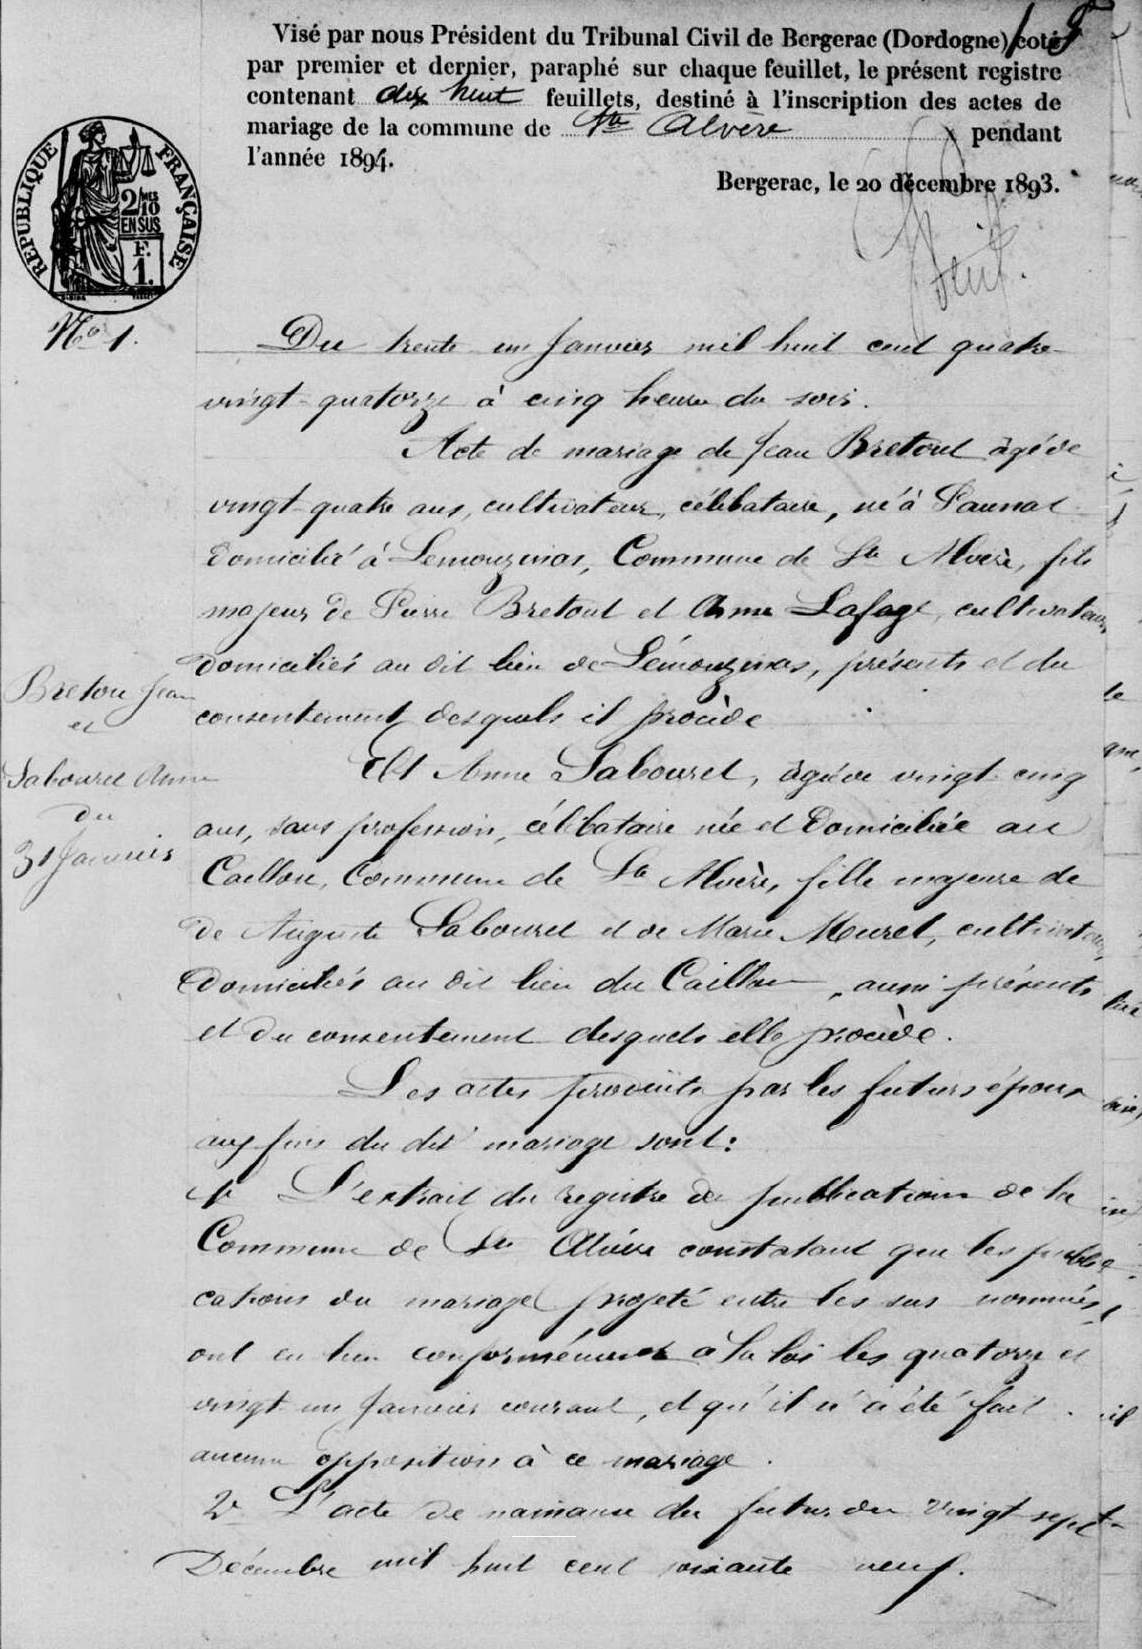 Visé par nous Président du Tribunal Civil de Bergerac (Dordogne) coté
par premier et dernier, paraphé sur chaque feuillet, le présent registre
contenant dix huit feuillets, destiné à l'inscription des actes de
mariage de la commune de Ste Alvère pendant
l'année 1894.
Bergerac, le 20 décembre 1893.
RÉPUBLIQUE FRANÇAISE
2/10 MES
EN SUS
F.
1.
No 1.
Du trente un Janvier mil huit cent quatre
vingt-quatorze à cinq heure du soir.
Acte de mariage de Jean Bretout âgé de
vingt-quatre ans, cultivateur, célibataire, né à Paunat
domicilié à Lemouzinas, Commune de Ste Alvère, fils
majeur de Pierre Bretout et Anne Lafage, cultivateurs
domiciliés au dit lieu de Lémouzinas, présents et du
consentement desquels il procède
Bretou Jean
et
Labouret Anne
du
31 Janvier
Et Anne Labouret, âgée de vingt-cinq
ans, sans profession, célibataire née et domiciliée au
Caillou, Commune de Ste Alvère, fille majeure de
de Auguste Labouret et de Marie Meuret, cultivateurs,
domiciliés au dit lieu du Caillou, aussi présents
et du consentement desquels elle procède.
Les actes produits par les futurs époux
aux fins du dit mariage sont:
1° L'extrait du registre de publications de la
Commune de Ste Alvère constatant que les publi
cations du mariage projeté entre les sus nommés
ont eu lieu conformément à la loi les quatorze et
vingt un Janvier courant, et qu'il n'a été fait
aucune opposition à ce mariage.
2° L'acte de naissance du futur du vingt sept
Décembre mil huit cent soixante neuf.